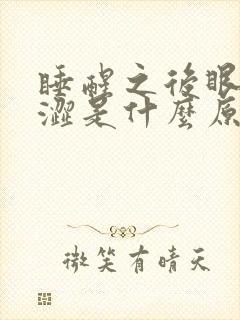 睡醒之後眼
澀是什麼原
微笑有晴天